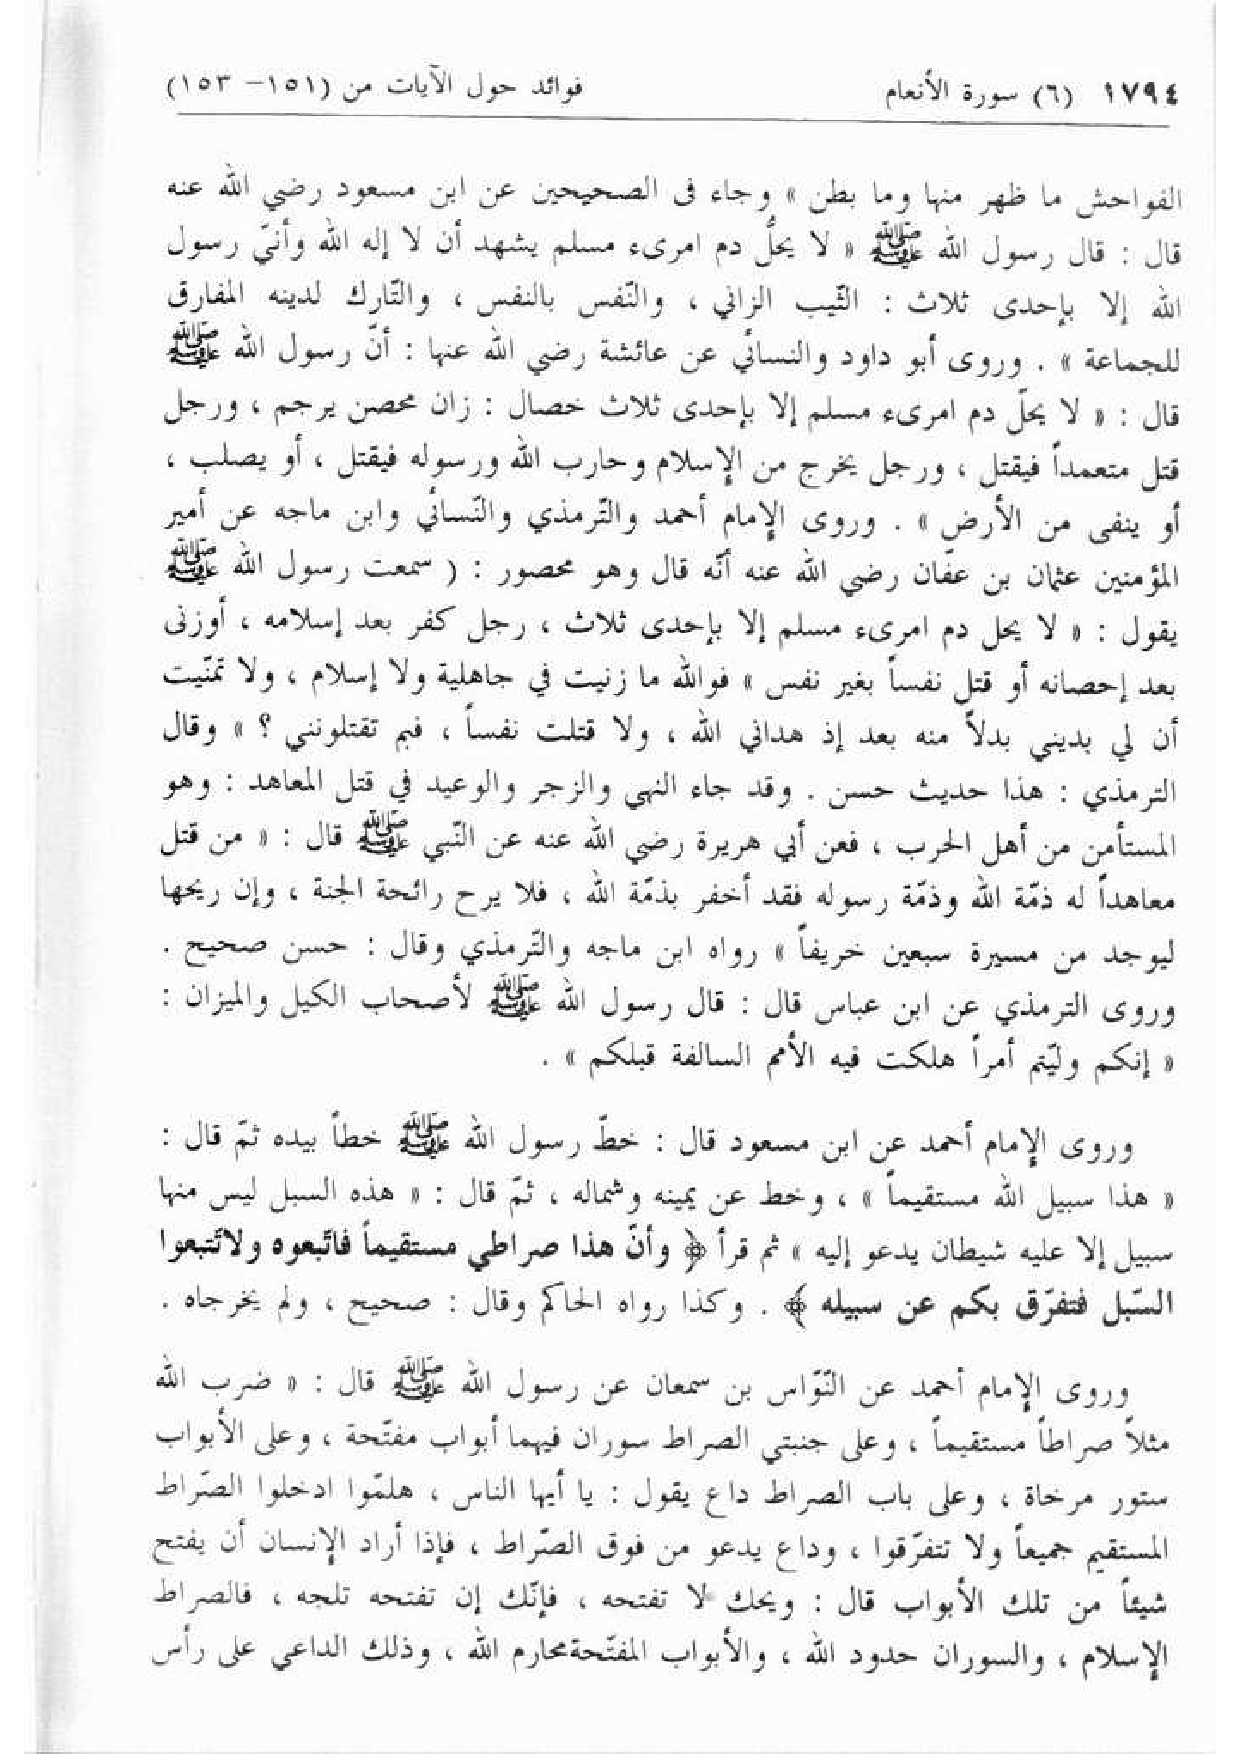 ١٧٩٤ (٦) سورة الأنعام فوائد حول الآيات من (١٥١- ١٥٣)
الفواحش ما ظهر منها وما بطن » وجاء فى الصحيحين عن ابن مسعود رضي الله عنه
قال : قال رسول الله ﷺ « لا يحلُّ دم امرىء مسلم يشهد أن لا إله الله وأنيّ رسول
الله إلا بإحدى ثلاث : الثّيب الزاني ، والنّفس بالنفس ، والتّارك لدينه المفارق
للجماعة » . وروى أبو داود والنسائي عن عائشة رضي الله عنها : أنّ رسول الله ﷺ
قال : « لا يحلّ دم امرىء مسلم إلا بإحدى ثلاث خصال : زان محصن يرجم ، ورجل
قتل متعمداً فيقتل ، ورجل يخرج من الإسلام وحارب الله ورسوله فيقتل ، أو يصلب ،
أو ينفى من الأرض » . وروى الإمام أحمد والتّرمذي والنّسائي وابن ماجه عن أمير
المؤمنين عثمان بن عفّان رضي الله عنه أنّه قال وهو محصور : ( سمعت رسول الله ﷺ
يقول : « لا يحل دم امرىء مسلم إلا بإحدى ثلاث ، رجل كفر بعد إسلامه ، أوزنى
بعد إحصانه أو قتل نفساً بغير نفس » فوالله ما زنيت في جاهلية ولا إسلام ، ولا تمنّيت
أن لي بديني بدلاً منه بعد إذ هداني الله ، ولا قتلت نفساً ، فبم تقتلونني ؟ » وقال
الترمذي : هذا حديث حسن . وقد جاء النهي والزجر والوعيد في قتل المعاهد : وهو
المستأمن من أهل الحرب ، فعن أبي هريرة رضي الله عنه عن النّبي ﷺ قال : « من قتل
معاهداً له ذمّة الله وذمّة رسوله فقد أخفر بذمّة الله ، فلا يرح رائحة الجنة ، وإن ريحها
ليوجد من مسيرة سبعين خريفاً » رواه ابن ماجه والتّرمذي وقال : حسن صحيح .
وروى الترمذي عن ابن عباس قال : قال رسول الله ﷺ لأصحاب الكيل والميزان :
« إنكم وليّتم أمراً هلكت فيه الأمم السالفة قبلكم » .
وروى الإمام أحمد عن ابن مسعود قال : خطّ رسول الله ﷺ خطاً بيده ثمّ قال :
« هذا سبيل الله مستقيماً » ، وخط عن يمينه وشماله ، ثمّ قال : « هذه السبل ليس منها
سبيل إلا عليه شيطان يدعو إليه » ثم قرأ ﴿ وأنّ هذا صراطي مستقيماً فاتّبعوه ولاتتّبعوا
السّبل فتفرّق بكم عن سبيله ﴾ . وكذا رواه الحاكم وقال : صحيح ، ولم يخرجاه .
وروى الإمام أحمد عن النّوّاس بن سمعان عن رسول الله ﷺ قال : « ضرب الله
مثلاً صراطاً مستقيماً ، وعلى جنبتي الصراط سوران فيهما أبواب مفتّحة ، وعلى الأبواب
ستور مرخاة ، وعلى باب الصراط داع يقول : يا أيها الناس ، هلمّوا ادخلوا الصّراط
المستقيم جميعاً ولا تتفرّقوا ، وداع يدعو من فوق الصّراط ، فإذا أراد الإنسان أن يفتح
شيئاً من تلك الأبواب قال : ويحك لا تفتحه ، فإنّك إن تفتحه تلجه ، فالصراط
الإسلام ، والسوران حدود الله ، والأبواب المفتّحة محارم الله ، وذلك الداعي على رأس